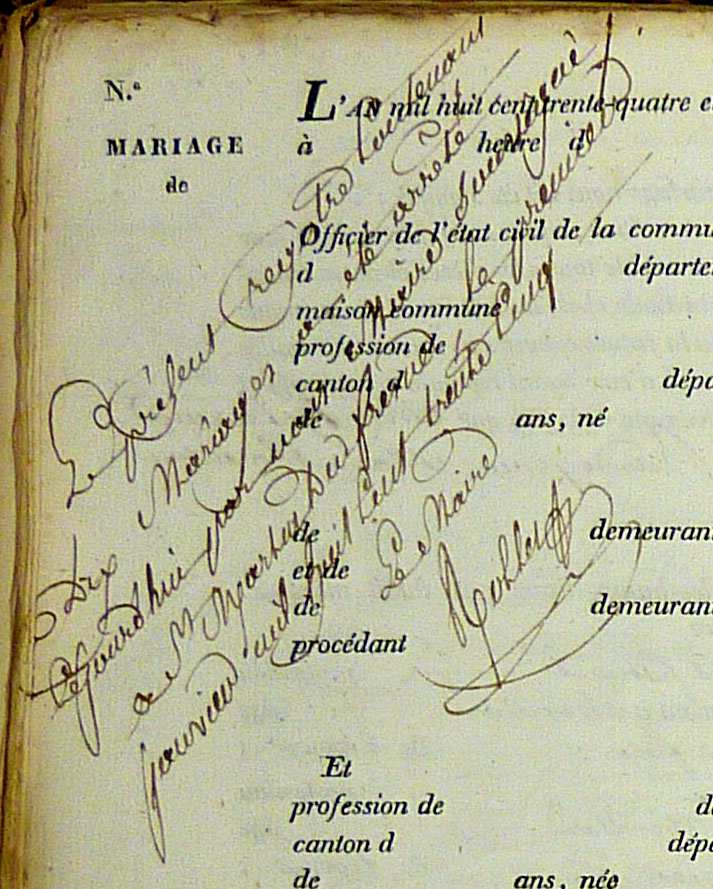 N.º
MARIAGE
de
L'AN mil huit cent trente-quatre e
à heure d
Officier de l'état civil de la commu
d départe
maison commune
profession de
canton d dépa
de ans, né
de demeurant
et de
de demeurant
procédant
Et
profession de d
canton d dépa
de ans, née
Le présent registre Contenant
Dix Mariages a été arrêté
Cejourd'hui par nous Maire soussigné
a St Martin Dufrêne, le premier
janvier mil huit Cent trente Cinq
Le Maire